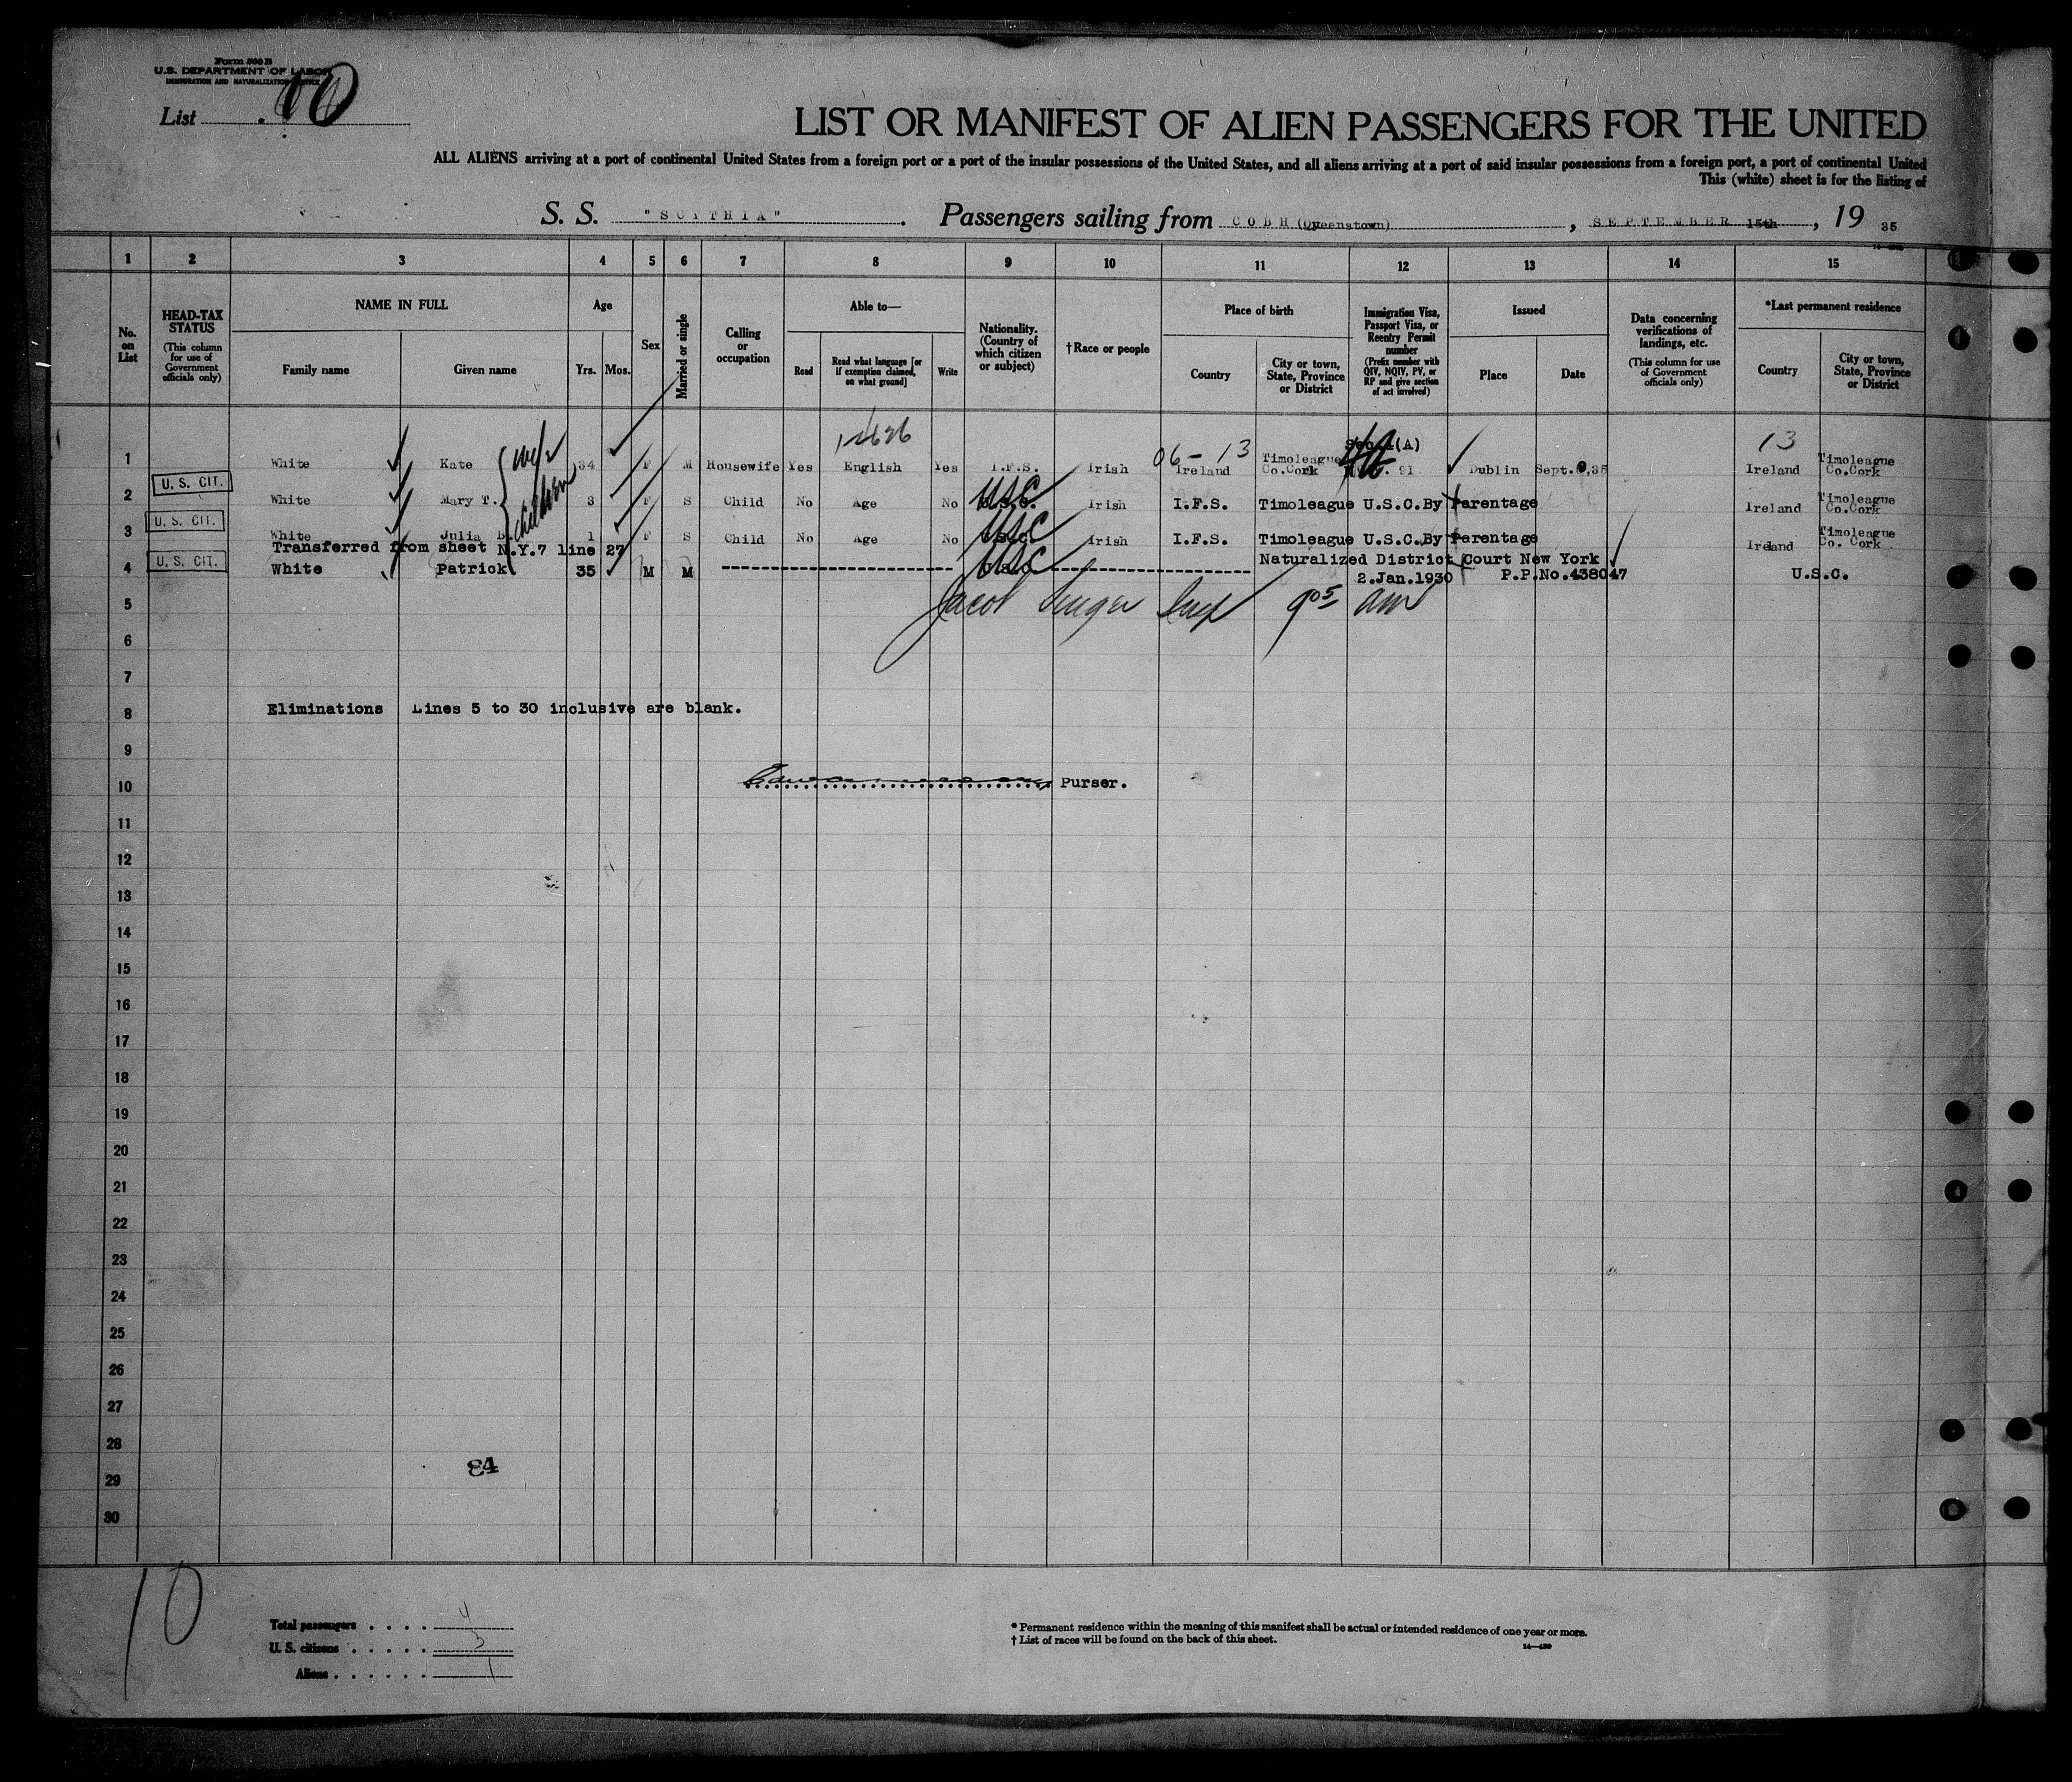 Form 500 B
U.S. DEPARTMENT OF LABOR
IMMIGRATION AND NATURALIZATION SERVICE
List 10
LIST OR MANIFEST OF ALIEN PASSENGERS FOR THE UNITED
ALL ALIENS arriving at a port of continental United States from a foreign port or a port of the insular possessions of the United States, and all aliens arriving at a port of said insular possessions from a foreign port, a port of continental United
This (white) sheet is for the listing of
S. S. "SCYTHIA". Passengers sailing from COBH (Queenstown), SEPTEMBER 15th, 19 35
1 2 3 4 5 6 7 8 9 10 11 12 13 14 15
No. on List
HEAD-TAX STATUS (This column for use of Government officials only)
NAME IN FULL
Family name Given name
Age
Yrs. Mos.
Sex
Married or single
Calling or occupation
Able to—
Read Read what language [or if exemption claimed, on what ground] Write
Nationality. (Country of which citizen or subject)
†Race or people
Place of birth
Country City or town, State, Province or District
Immigration Visa, Passport Visa, or Reentry Permit number (Prefix number with QIV, NQIV, PV, or RP and give section of act involved)
Issued
Place Date
Data concerning verifications of landings, etc. (This column for use of Government officials only)
*Last permanent residence
Country City or town, State, Province or District
06-13 (A) 13
1 White Kate wife 34 F M Housewife Yes English Yes I.F.S. Irish Ireland Timoleague Co.Cork 91 Dublin Sept. ,35 Ireland Timoleague Co.Cork
2 U. S. CIT. White Mary T. children 3 F S Child No Age No USC Irish I.F.S. Timoleague U.S.C.By Parentage Ireland Timoleague Co.Cork
3 U. S. CIT. White Julia B. 1 F S Child No Age No USC Irish I.F.S. Timoleague U.S.C.By Parentage Ireland Timoleague Co. Cork
Transferred from sheet N.Y.7 line 27 Naturalized District Court New York
4 U. S. CIT. White Patrick 35 M M USC 2.Jan.1930 P.P.No.438047 U.S.C.
5 Jacob Singer Insp 9 05 am
6
7
8 Eliminations Lines 5 to 30 inclusive are blank.
9
10 Purser.
11
12
13
14
15
16
17
18
19
20
21
22
23
24
25
26
27
28
29 84
30
10
Total passengers . . . . 4
U. S. citizens . . . . . 3
Aliens . . . . . . 1
* Permanent residence within the meaning of this manifest shall be actual or intended residence of one year or more.
† List of races will be found on the back of this sheet.
14—430